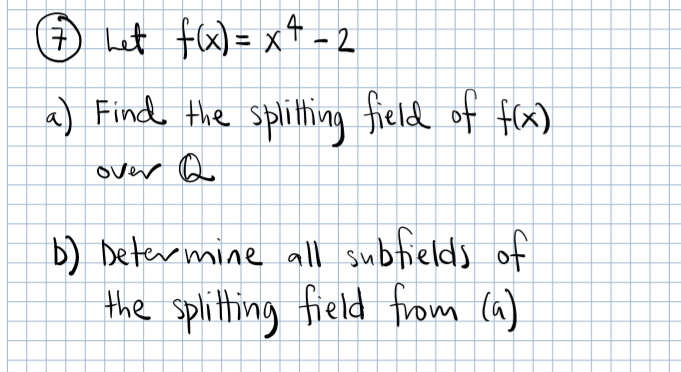 7 Let f(x) = x⁴ - 2
a) Find the splitting field of f(x)
over Q
b) Determine all subfields of
the splitting field from (a)